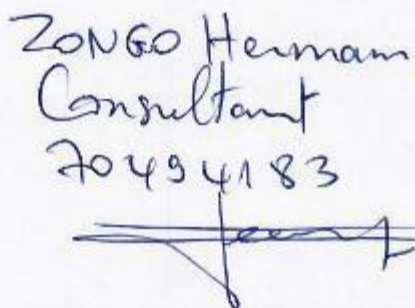 ZONGO Hermann
Consultant
70494183